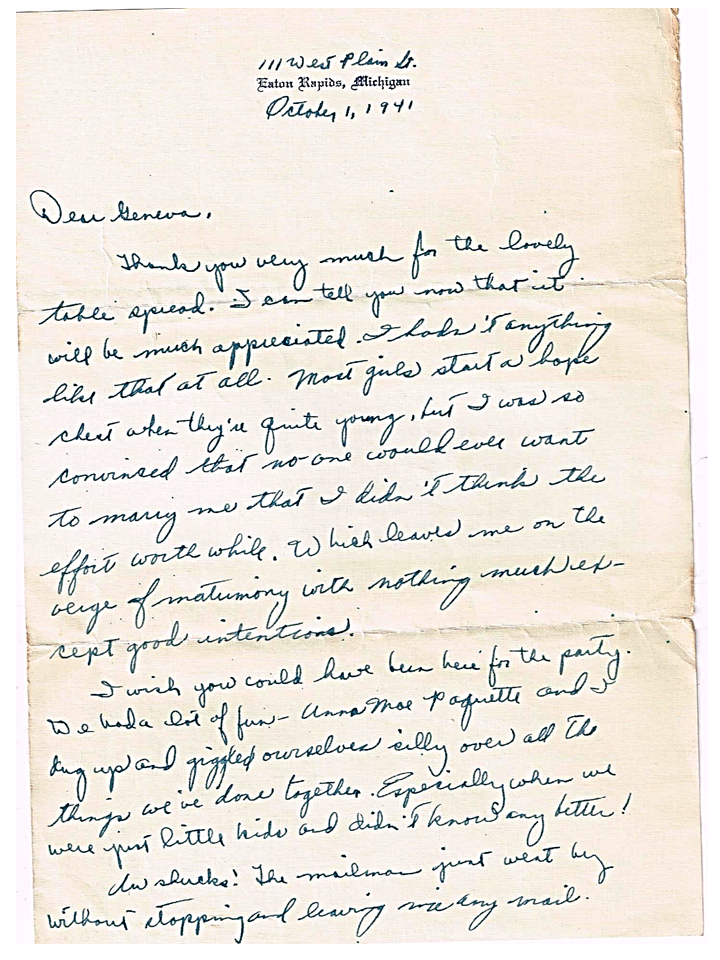 111 West Plain St.
Eaton Rapids, Michigan
October 1, 1941
Dear Geneva,
Thank you very much for the lovely
table spread. I can tell you now that it
will be much appreciated. I hadn't anything
like that at all. Most girls start a hope
chest when they're quite young, but I was so
convinced that no-one would ever want
to marry me that I didn't think the
effort worth while. Which leaves me on the
verge of matrimony with nothing much ex-
cept good intentions.
I wish you could have been here for the party.
We had a lot of fun - Anna Mae Paquette and I
dug up and giggled ourselves silly over all the
things we've done together. Especially when we
were just little kids and didn't know any better!
Aw shucks! The mailman just went by
without stopping and leaving me any mail.